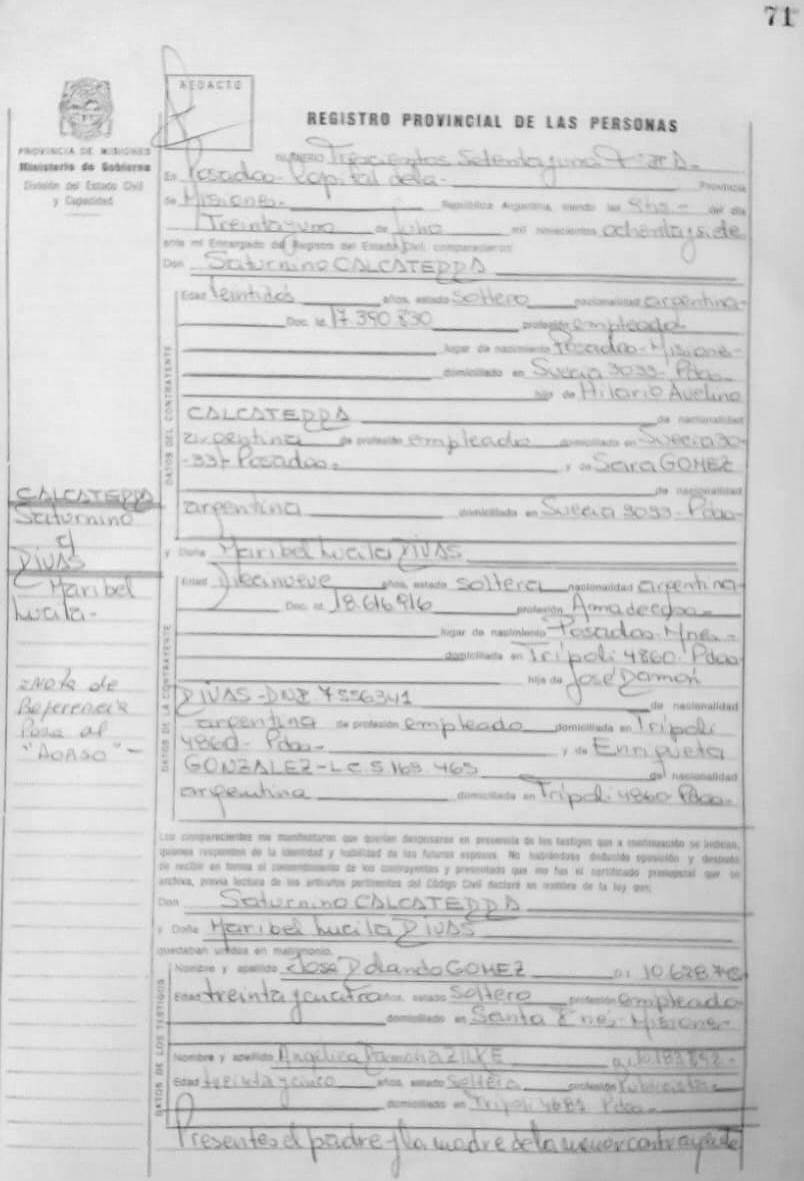 71
REDACTO
REGISTRO PROVINCIAL DE LAS PERSONAS
PROVINCIA DE MISIONES
Ministerio de Gobierno
División del Estado Civil
y Capacidad
NUMERO Trescientos Setenta y uno
En Posadas - Capital de la - Provincia
de Misiones - República Argentina, siendo las 9 hs - del día
Treinta y uno de Julio mil novecientos ochenta y siete
ante mí Encargado del Registro del Estado Civil, comparecieron:
Don Saturnino CALCATERRA
DATOS DEL CONTRAYENTE
Edad veintidós años, estado Soltero nacionalidad argentina-
Doc. Id. 17.390.830 profesión empleado
lugar de nacimiento Posadas - Misiones-
domiciliado en Suecia 3033 - Pdas-
hijo de Hilario Avelino
CALCATERRA de nacionalidad
argentina de profesión empleado domiciliado en Suecia 30-
-33- Posadas- y de Sara GOMEZ
de nacionalidad
argentina domiciliada en Suecia 3033- Pdas-
CALCATERRA
Saturnino
c/
RIVAS
Maribel
Lucila-
=Nota de
Referencia
Pasa al
y Doña Maribel Lucila RIVAS
DATOS DE LA CONTRAYENTE
Edad Diecinueve años, estado soltera nacionalidad argentina-
Doc. Id. 18.616.916 profesión Ama de casa-
lugar de nacimiento Posadas-Mnes-
domiciliada en Trípoli 4860- Pdas
hija de José Ramón
RIVAS -DNI 7556341 de nacionalidad
argentina de profesión empleado domiciliado en Trípoli
4860- Pdas- y de Enriqueta
GONZALEZ-L.C. 5.169.465 de nacionalidad
argentina domiciliada en Trípoli 4860 Pdas-
Los comparecientes me manifestaron que querían desposarse en presencia de los testigos que a continuación se indican,
quienes responden de la identidad y habilidad de los futuros esposos. No habiéndose deducido oposición y después
de recibir en forma el consentimiento de los contrayentes y presentado que me fue el certificado prenupcial que se
archiva, previa lectura de los artículos pertinentes del Código Civil declaré en nombre de la ley que:
Don Saturnino CALCATERRA
y Doña Maribel Lucila RIVAS
quedaban unidos en matrimonio.
DATOS DE LOS TESTIGOS
Nombre y apellido José Rolando GOMEZ
Edad treinta y cuatro años, estado Soltero profesión empleado
domiciliado en Santa Inés- Misiones-
Nombre y apellido Angélica Ramona ZILKE
Edad treinta y cinco años, estado Soltera profesión
domiciliado en Trípoli Pdas-
Presentes el padre y la madre de la menor contrayente